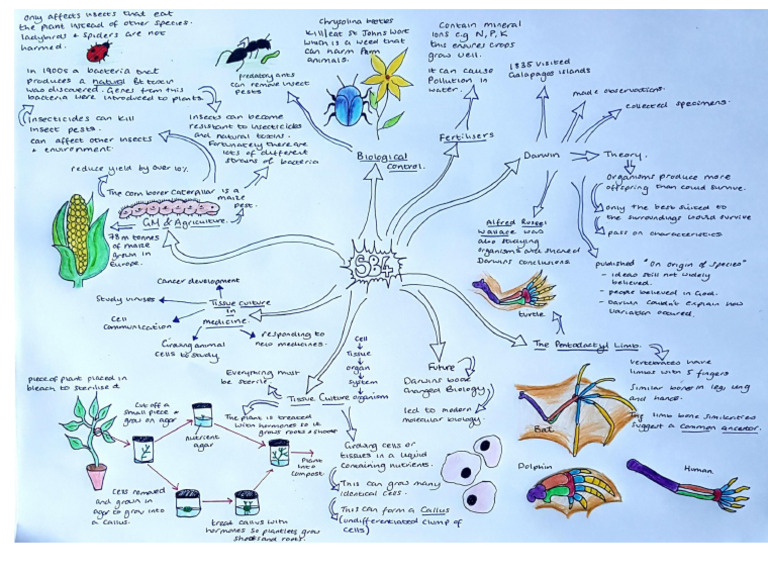 only affects insects that eat
the plant instead of other species.
ladybirds + spiders are not
harmed.
In 1900s a bacteria that
produces a natural Bt toxin
was discovered. Genes from this
bacteria were introduced to plants.
Insecticides can kill
insect pests.
can affect other insects
+ environment.
reduce yield by over 10%.
The corn borer caterpillar is a
maize
pest.
GM & Agriculture.
78m tonnes
of maize
grown in
Europe.
predatory ants
can remove insect
pests
Insects can become
resistant to insecticides
and natural toxins.
Fortunately there are
lots of different
strains of bacteria
Chrysolina beetles
kill/eat St Johns Wort
which is a weed that
can harm farm
animals.
Biological
Control.
Contain mineral
ions e.g N, P, K
this ensures crops
grow well.
It can cause
Pollution in
water.
Fertilisers
1835 visited
Galapagos islands
made observations.
collected specimens.
Darwin
Theory.
organisms produce more
offspring than could survive.
only the best suited to
the surroundings would survive
pass on characteristics
published "On origin of species"
- ideas still not widely
believed.
- people believed in God.
- Darwin couldn't explain how
variation occured.
Alfred Russel
Wallace was
also studying
organisms and shared
Darwins conclusions
SB4
turtle
The Pentadactyl Limb.
vertebrates have
limbs with 5 fingers
Similar bones in leg, wing
and hands.
limb bone similarities
suggest a common ancestor.
Bat
Dolphin
Human
Future
Darwins book
changed Biology
led to modern
molecular biology.
Cancer development
Study viruses
Cell
communication
Tissue culture
in
medicine.
Growing animal
cells to study
responding to
new medicines.
Cell
Tissue
organ
system
organism
Everything must
be sterile
Tissue Culture
The plant is treated
with hormones so it
grows roots + shoots
Growing cells or
tissues in a liquid
containing nutrients.
This can grow many
identical cells.
This can form a Callus
(undifferentiated clump of
cells)
piece of plant placed in
bleach to sterilise it
Cut off a
small piece +
grow on agar
nutrient
agar
Plant
into
compost.
Cells removed
and grown in
agar to grow into
a callus.
treat callus with
hormones so plantlets grow
shoots and roots.